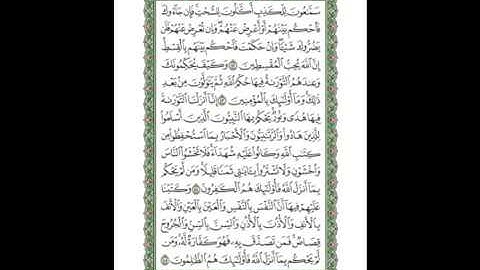 سَمَّٰعُونَ لِلْكَذِبِ أَكَّٰلُونَ لِلسُّحْتِ فَإِن جَآءُوكَ
فَٱحْكُم بَيْنَهُمْ أَوْ أَعْرِضْ عَنْهُمْ وَإِن تُعْرِضْ عَنْهُمْ فَلَن
يَضُرُّوكَ شَيْـًٔا وَإِنْ حَكَمْتَ فَٱحْكُم بَيْنَهُم بِٱلْقِسْطِ
إِنَّ ٱللَّهَ يُحِبُّ ٱلْمُقْسِطِينَ ۝ وَكَيْفَ يُحَكِّمُونَكَ
وَعِندَهُمُ ٱلتَّوْرَىٰةُ فِيهَا حُكْمُ ٱللَّهِ ثُمَّ يَتَوَلَّوْنَ مِنۢ بَعْدِ
ذَٰلِكَ وَمَآ أُو۟لَٰٓئِكَ بِٱلْمُؤْمِنِينَ ۝ إِنَّآ أَنزَلْنَا ٱلتَّوْرَىٰةَ
فِيهَا هُدًى وَنُورٌ يَحْكُمُ بِهَا ٱلنَّبِيُّونَ ٱلَّذِينَ أَسْلَمُوا۟
لِلَّذِينَ هَادُوا۟ وَٱلرَّبَّٰنِيُّونَ وَٱلْأَحْبَارُ بِمَا ٱسْتُحْفِظُوا۟ مِن
كِتَٰبِ ٱللَّهِ وَكَانُوا۟ عَلَيْهِ شُهَدَآءَ فَلَا تَخْشَوُا۟ ٱلنَّاسَ
وَٱخْشَوْنِ وَلَا تَشْتَرُوا۟ بِـَٔايَٰتِى ثَمَنًا قَلِيلًا وَمَن لَّمْ يَحْكُم
بِمَآ أَنزَلَ ٱللَّهُ فَأُو۟لَٰٓئِكَ هُمُ ٱلْكَٰفِرُونَ ۝ وَكَتَبْنَا
عَلَيْهِمْ فِيهَآ أَنَّ ٱلنَّفْسَ بِٱلنَّفْسِ وَٱلْعَيْنَ بِٱلْعَيْنِ وَٱلْأَنفَ
بِٱلْأَنفِ وَٱلْأُذُنَ بِٱلْأُذُنِ وَٱلسِّنَّ بِٱلسِّنِّ وَٱلْجُرُوحَ
قِصَاصٌ فَمَن تَصَدَّقَ بِهِۦ فَهُوَ كَفَّارَةٌ لَّهُۥ وَمَن
لَّمْ يَحْكُم بِمَآ أَنزَلَ ٱللَّهُ فَأُو۟لَٰٓئِكَ هُمُ ٱلظَّٰلِمُونَ ۝